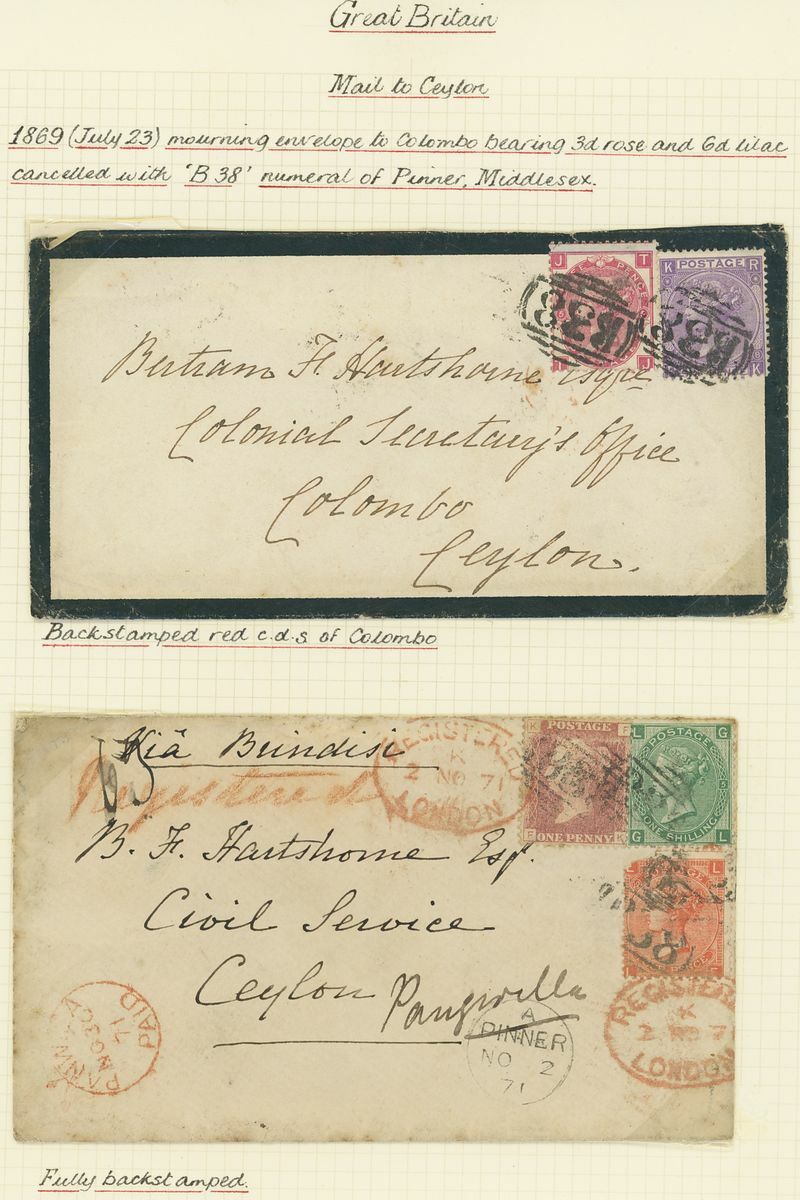 Great Britain
Mail to Ceylon
1869 (July 23) mourning envelope to Colombo bearing 3d rose and 6d lilac
cancelled with 'B 38' numeral of Pinner, Middlesex.
J T
K POSTAGE R
PENCE
B38
B38
J
K
Bertram F. Hartshorne Esqre
Colonial Secretary's Office
Colombo
Ceylon.
Backstamped red c.d.s of Colombo
Viâ Brindisi
Registered
REGISTERED
K
2 NO 71
LONDON
K POSTAGE P
P ONE PENNY K
L POSTAGE G
G ONE SHILLING L
B. F. Hartshorne Esqr.
Civil Service
Ceylon
L
REGISTERED
K
2 NO 7
LONDON
A
PINNER
NO 2
71
PAID
71
Fully backstamped.